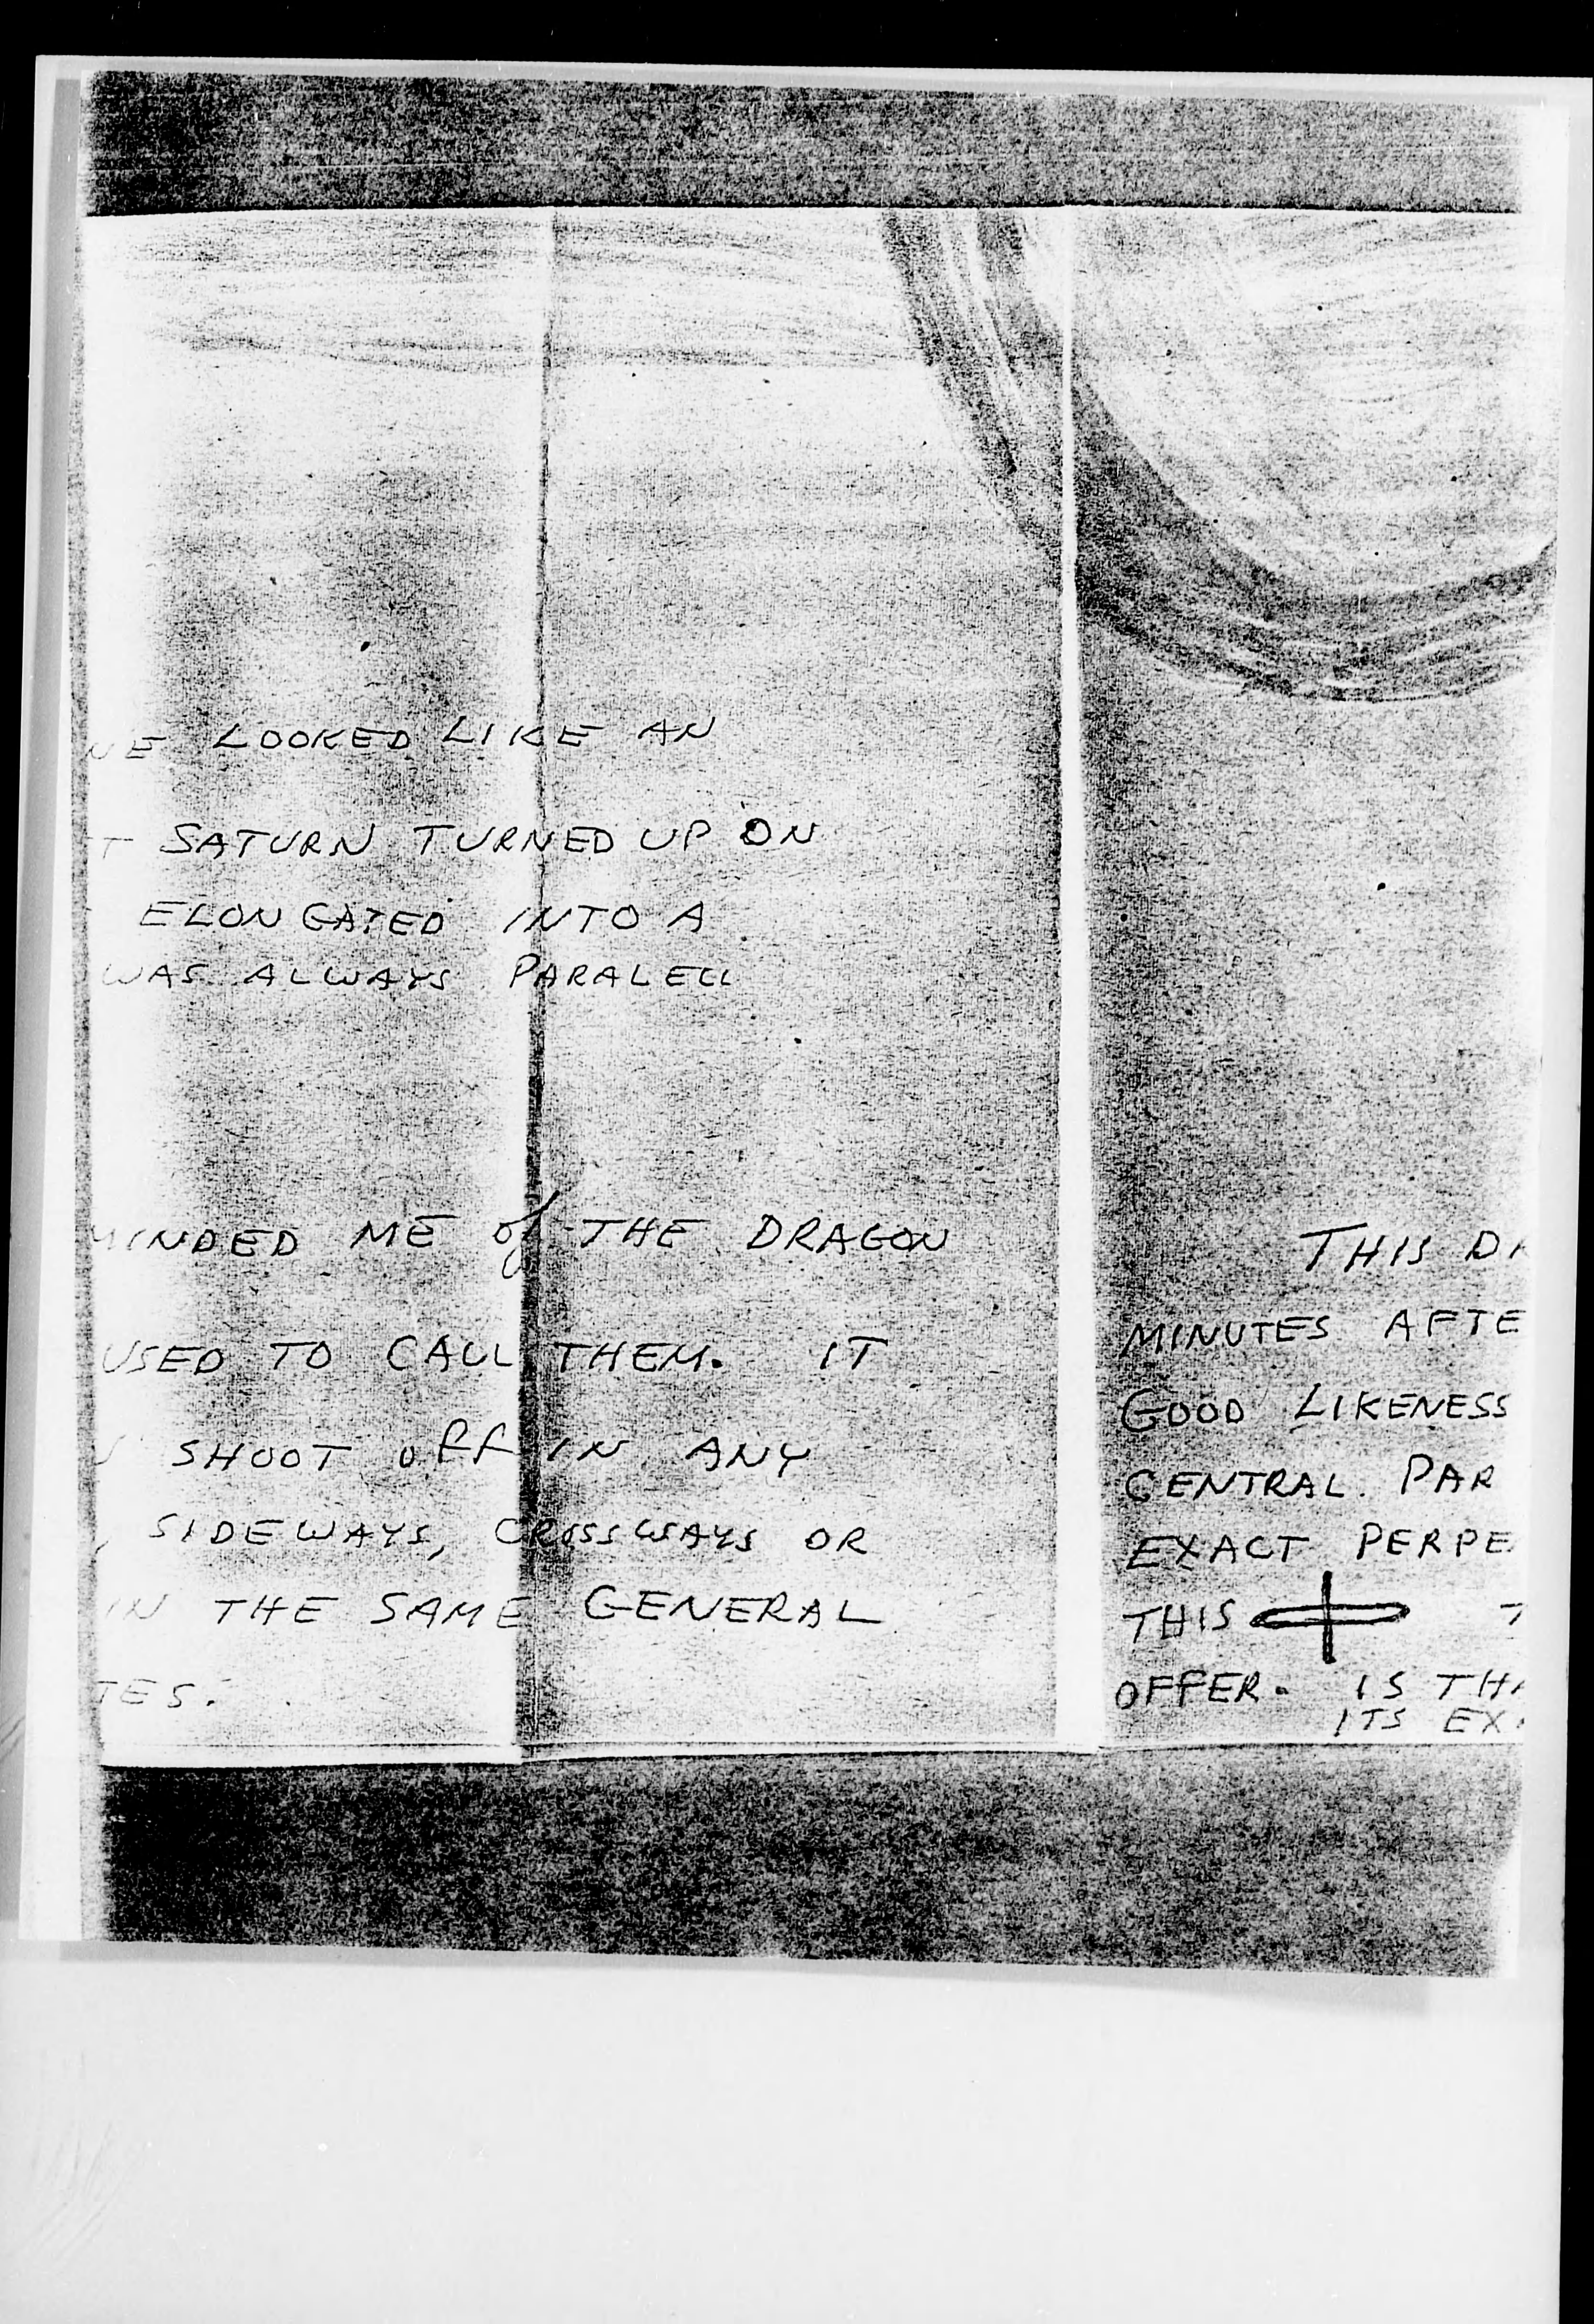 LOOKED LIKE AN
SATURN TURNED UP ON
ELONGATED INTO A
WAS ALWAYS PARALELL
MINDED ME of THE DRAGON
USED TO CALL THEM. IT
SHOOT off IN ANY
, SIDEWAYS, CROSSWAYS OR
IN THE SAME GENERAL
TES.
THIS
MINUTES AFTE
GOOD LIKENESS
CENTRAL PAR
EXACT PERPE
THIS
OFFER. IS THA
ITS EX